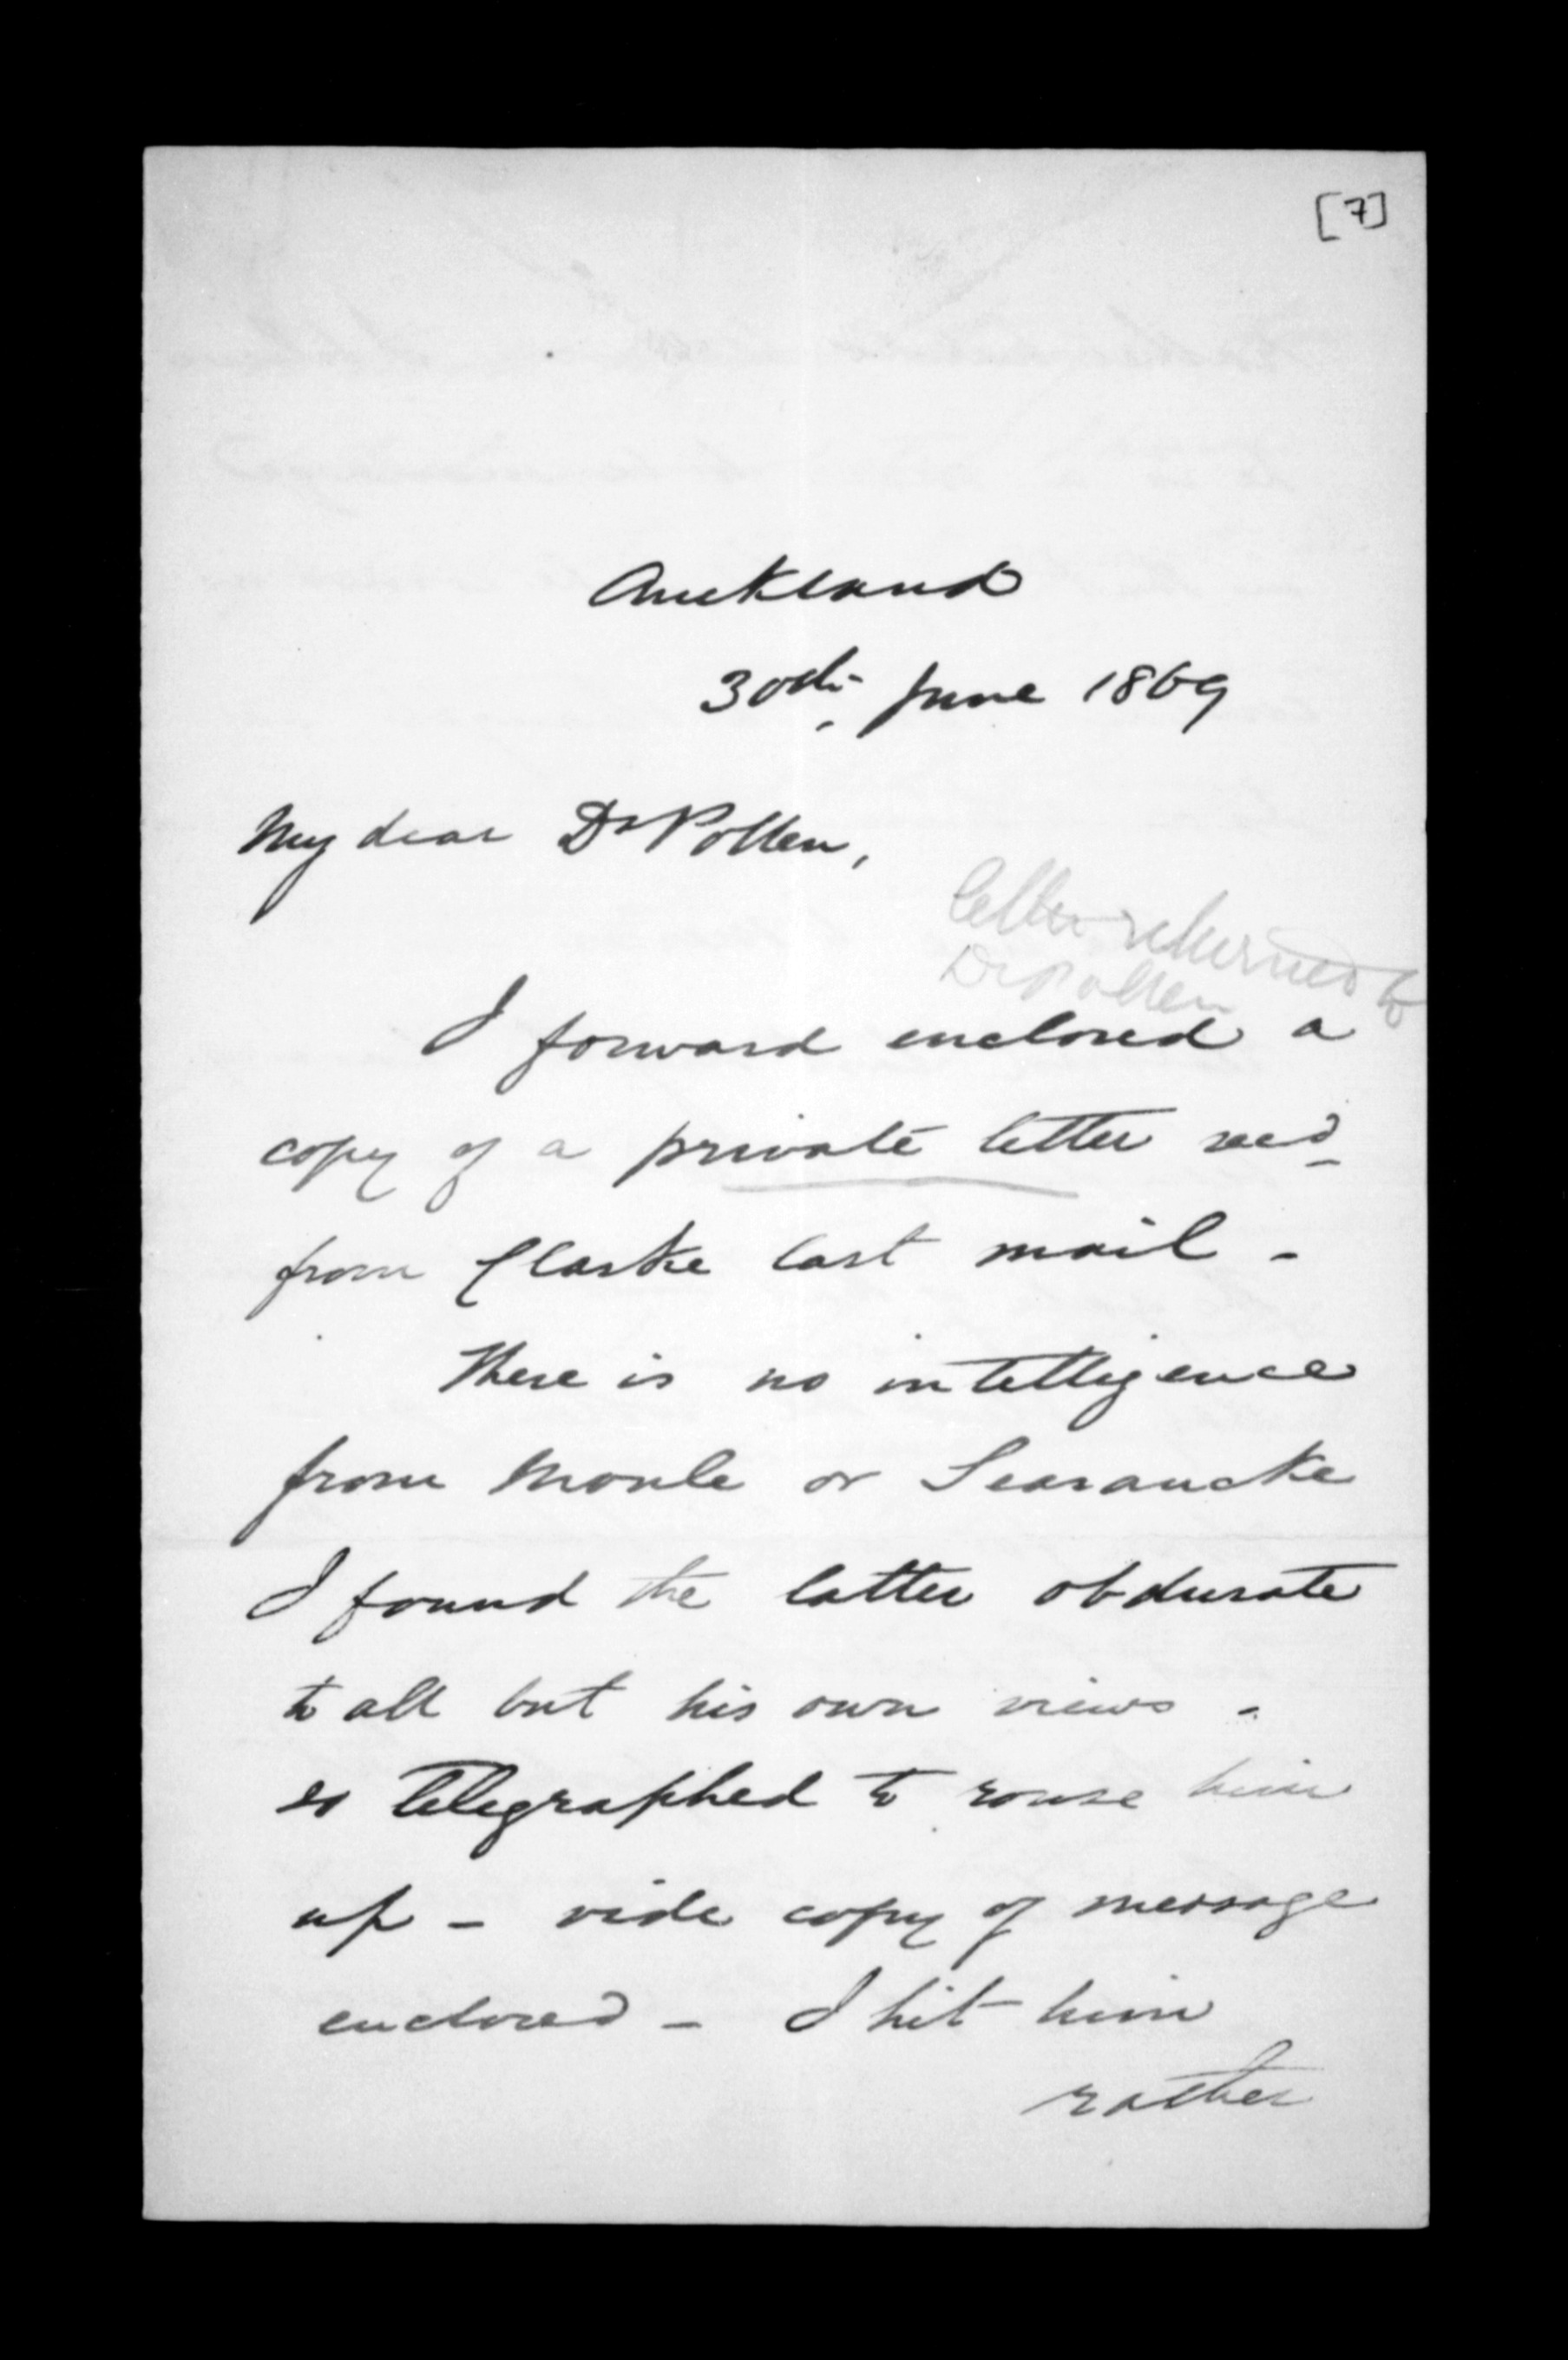 [7]
Auckland
30th June 1869
My dear Dr Pollen,
letter returned to
Dr Pollen
I forward enclosed a
copy of a private letter recd
from Clarke last mail -
There is no intelligence
from Moule or Searancke
I found the latter obdurate
to all but his own views -
so telegraphed to rouse him
up - vide copy of message
enclosed - I hit him
rather